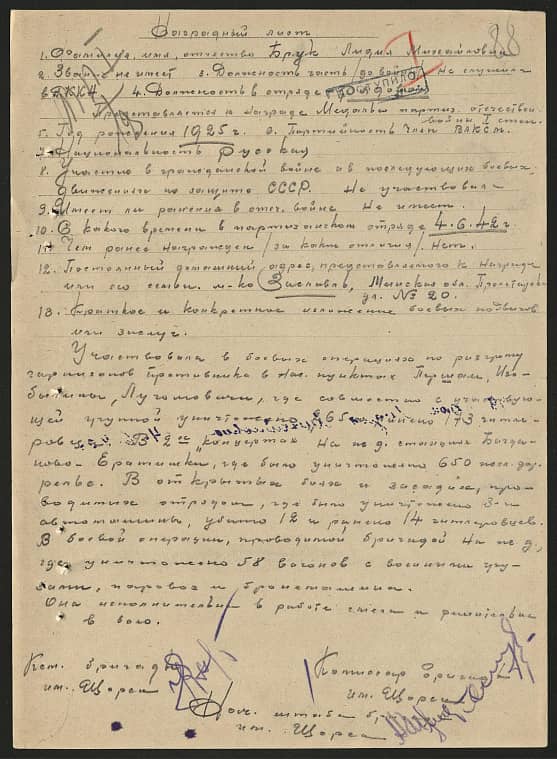 Наградный лист 88
1. Фамилия, имя, отчество Брук Лидия Михайловна
2. Звание не имеет 3. Должность часть /до войны/ Не служила
в РККА 4. Должность в отряде
ПОСТУПИЛО
Представляется к награде Медалью партиз. отечествен
войны I степ.
5. Год рождения 1925 г. 6. Партийность Член ВЛКСМ.
7. Национальность Русская
8. Участие в гражданской войне и в последующих боевых
движениях по защите СССР. Не участвовала
9. Имеет ли ранения в отеч. войне Не имеет.
10. С какого времени в партизанском отряде 4.6.42 г.
11. Чем ранее награжден /за какие отличия/ Нет.
12. Постоянный домашний адрес, представляемого к награде
или его семьи. м-ко Заславль, Минская обл. Пролетарск
ул. № 20.
13. Краткое и конкретное изложение боевых подвигов
или заслуг.
Участвовала в боевых операциях по разгрому
гарнизонов противника в нас. пунктах Першаи, Из-
Лугомовичи, где совместно с участвую-
щей группой уничтожено 65 ранено 173 гитле-
ровц. В 2-х "концертах" на ж. д. станции Богда-
ново - где было уничтожено 650 жел. дор.
рельс. В открытых боях и засадах, про-
водимых отрядом, где было уничтожено 3-и
автомашины, убито 12 и ранено 14 гитлеровцев.
В боевой операции, проводимой бригадой на ж. д,
где уничтожено 58 вагонов с военными гру-
зами, паровоз и бронемашина.
Она исполнительна в работе смела и решительна
в бою.
Ком. бригады Комиссар бригады
им. Щорса им. Щорса
Нач. штаба бр.
им. Щорса